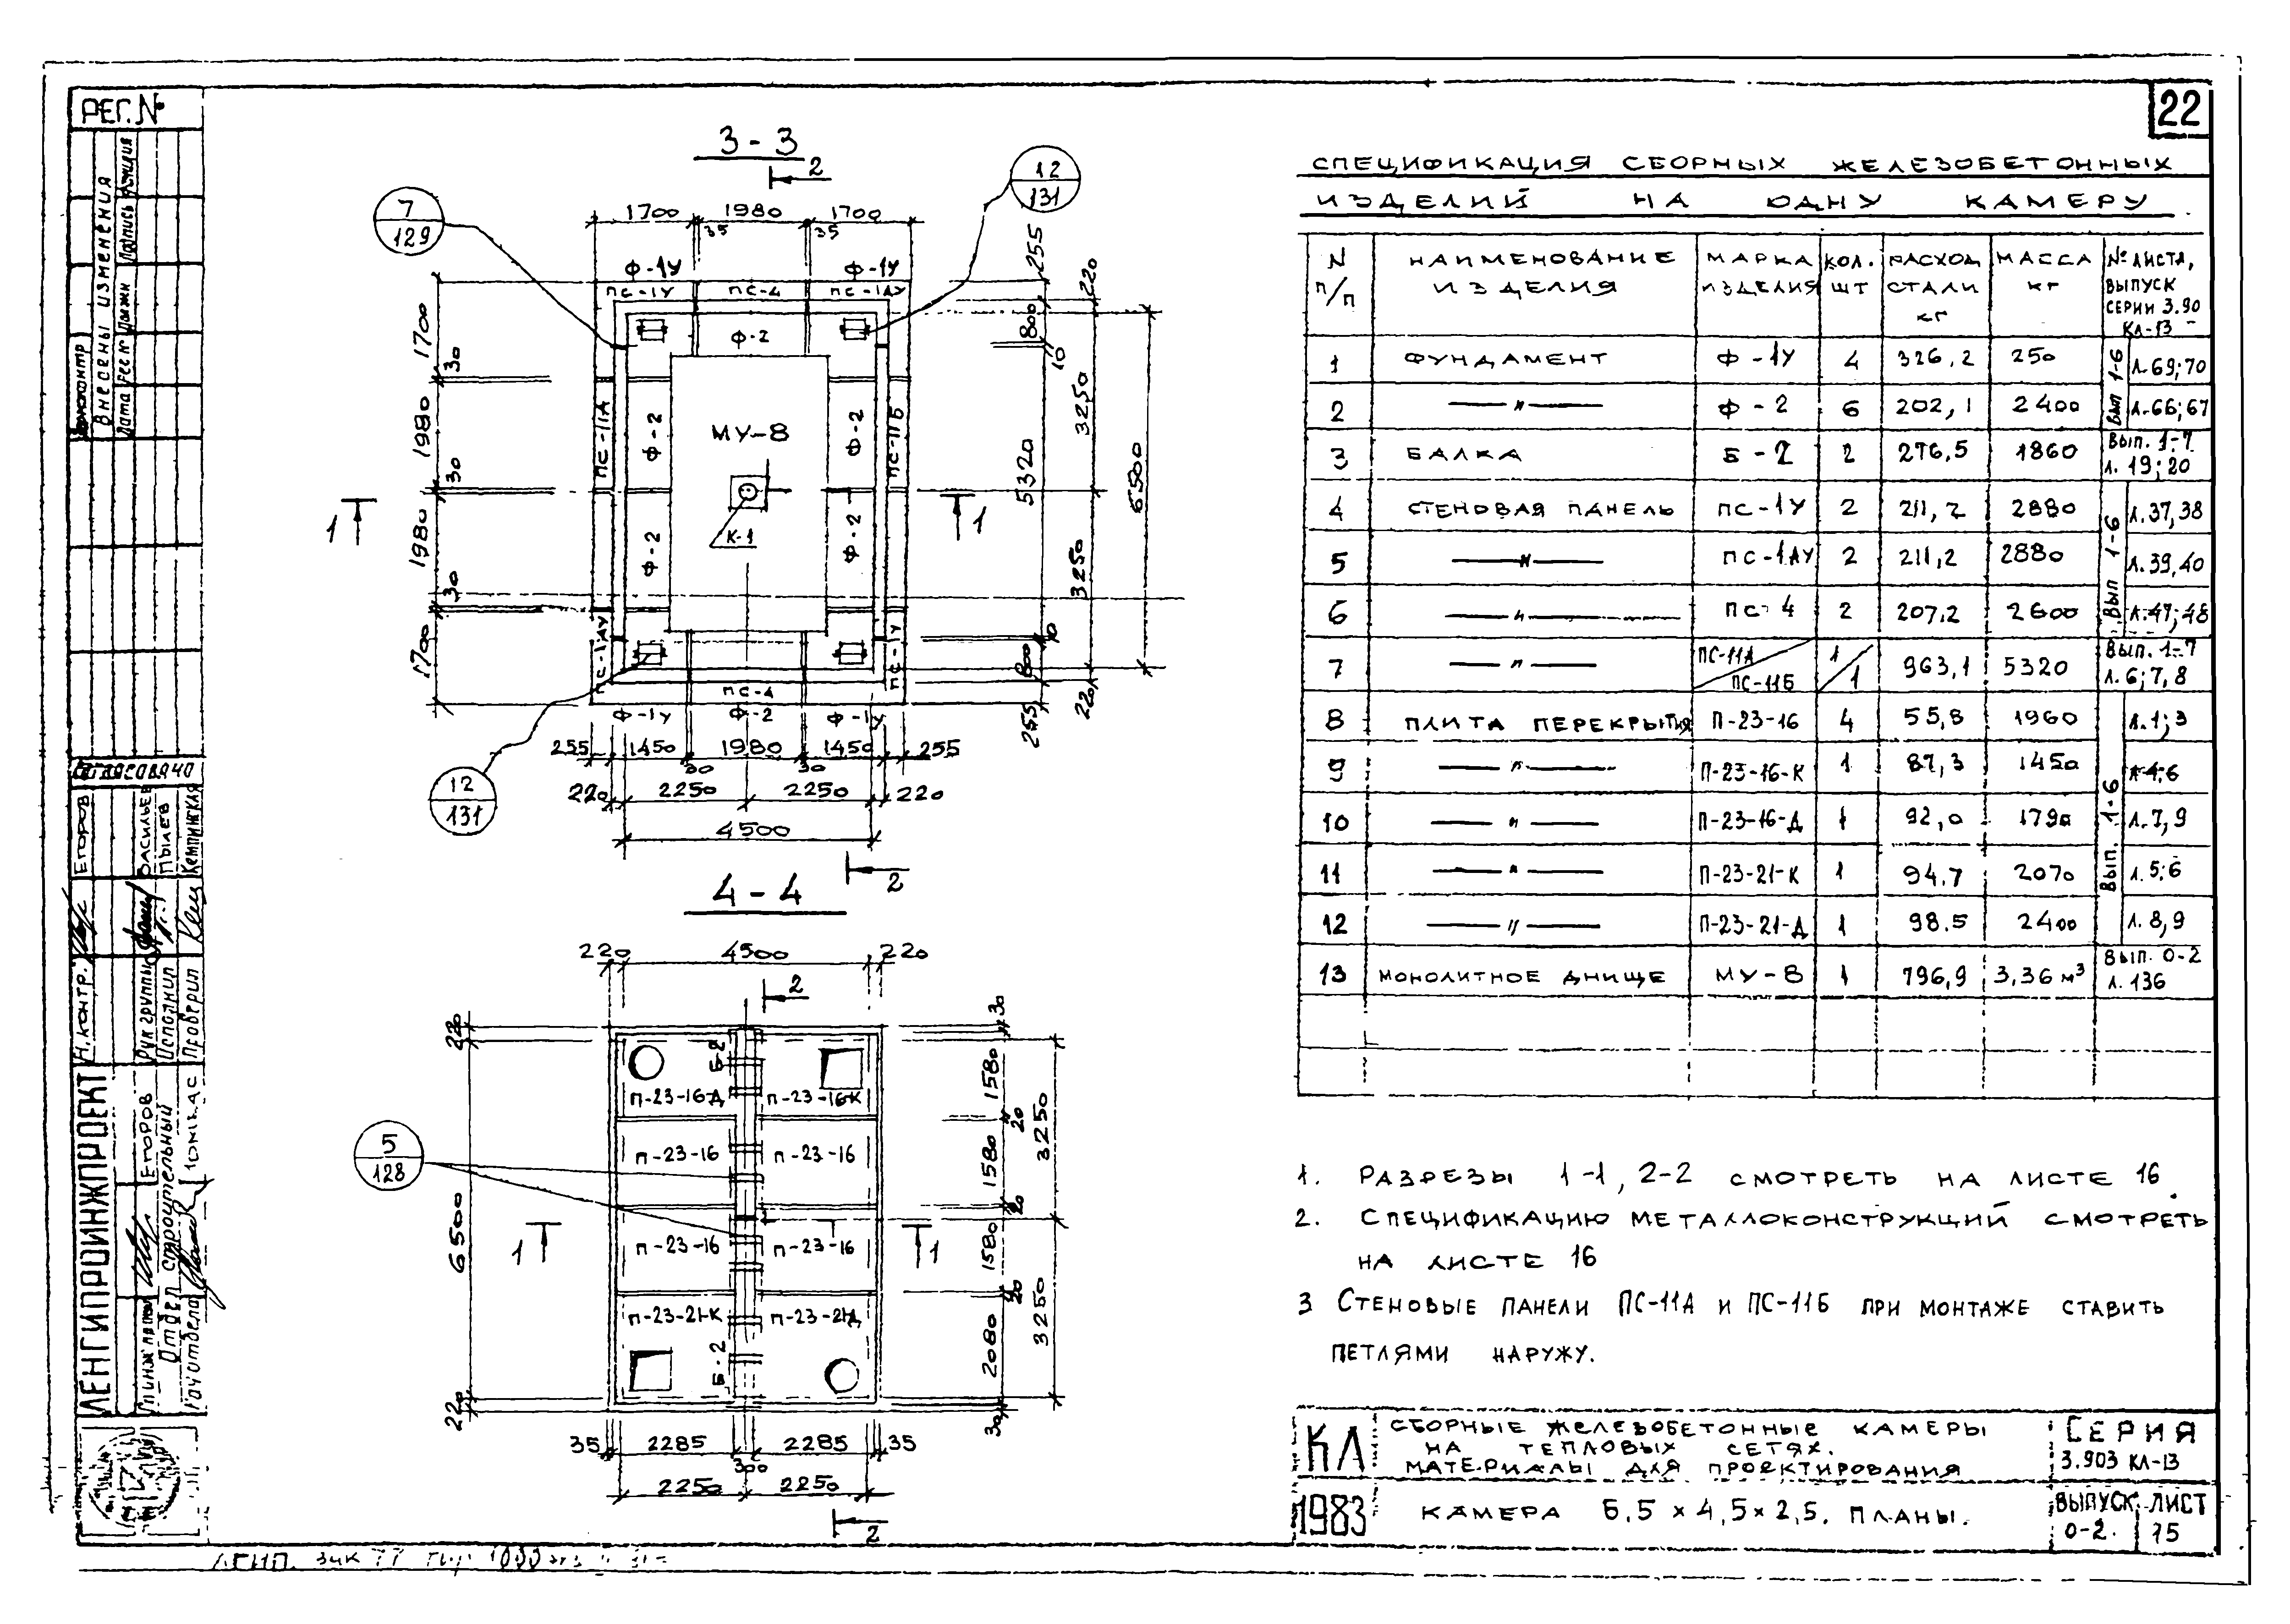 22
РЕГ. №
Внесены изменения
3 - 3
2
7
129
12
131
1700 1980 1700
35 35
Ф-1У Ф-1У
ПС-1У ПС-4 ПС-1АУ
255
220
1700
30
1980
30
1980
30
1700
Ф-2
ПС-11А
Ф-2
МУ-8
Ф-2
ПС-11Б
800
10
3250
5320
6500
3250
10
800
220
255
1
1
Ф-2
К-1
Ф-2
ПС-1АУ
ПС-1У
ПС-4
Ф-1У Ф-2 Ф-1У
255 1450 1980 1450 255
30 30
220 2250 2250 220
4500
12
131
2
4 - 4
220 4500 220
2
220
6500
220
Б-2
П-23-16Д П-23-16К
П-23-16 П-23-16
П-23-16 П-23-16
П-23-21-К П-23-21Д
Б-2
5
128
1
1
30
1580
20
1580
20
1580
20
2080
30
3250
3250
35 2285 2285 35
300
2250 2250
2
СПЕЦИФИКАЦИЯ СБОРНЫХ ЖЕЛЕЗОБЕТОННЫХ
ИЗДЕЛИЙ НА ОДНУ КАМЕРУ
N П/П НАИМЕНОВАНИЕ ИЗДЕЛИЯ МАРКА ИЗДЕЛИЯ КОЛ. ШТ РАСХОД СТАЛИ КГ МАССА КГ № ЛИСТА, ВЫПУСК СЕРИИ 3.90 КЛ-13
1 ФУНДАМЕНТ Ф-1У 4 326,2 250 ВЫП 1-6 Л.69;70
2 — " — Ф-2 6 202,1 2400 Л.66;67
3 БАЛКА Б-2 2 276,5 1860 ВЫП. 1-7 Л. 19;20
4 СТЕНОВАЯ ПАНЕЛЬ ПС-1У 2 211,2 2880 ВЫП 1-6 Л.37,38
5 — " — ПС-1АУ 2 211,2 2880 Л.39,40
6 — " — ПС-4 2 207,2 2600 Л.47;48
7 — " — ПС-11А / ПС-11Б 1/1 963,1 5320 ВЫП. 1-7 Л.6;7,8
8 ПЛИТА ПЕРЕКРЫТИЯ П-23-16 4 55,8 1960 ВЫП. 1-6 Л.1;3
9 — " — П-23-16-К 1 87,3 1450 Л.4;6
10 — " — П-23-16-Д 1 92,0 1790 Л.7,9
11 — " — П-23-21-К 1 94.7 2070 Л.5;6
12 — " — П-23-21-Д 1 98.5 2400 Л.8,9
13 МОНОЛИТНОЕ ДНИЩЕ МУ-8 1 796,9 3,36 м³ ВЫП. 0-2 Л.136
1. РАЗРЕЗЫ 1-1, 2-2 СМОТРЕТЬ НА ЛИСТЕ 16.
2. СПЕЦИФИКАЦИЮ МЕТАЛЛОКОНСТРУКЦИЙ СМОТРЕТЬ
НА ЛИСТЕ 16
3 СТЕНОВЫЕ ПАНЕЛИ ПС-11А И ПС-11Б ПРИ МОНТАЖЕ СТАВИТЬ
ПЕТЛЯМИ НАРУЖУ.
КЛ
1983
СБОРНЫЕ ЖЕЛЕЗОБЕТОННЫЕ КАМЕРЫ
НА ТЕПЛОВЫХ СЕТЯХ.
МАТЕРИАЛЫ ДЛЯ ПРОЕКТИРОВАНИЯ
КАМЕРА 6,5 × 4,5 × 2,5. ПЛАНЫ.
СЕРИЯ
3.903 КЛ-13
ВЫПУСК ЛИСТ
0-2. 15
Согласовано
Н.контр. Егоров
Рук группы Васильев
Исполнил Пылев
Проверил Кемпинская
ЛЕНГИПРОИНЖПРОЕКТ
Егоров
Отдел строительный